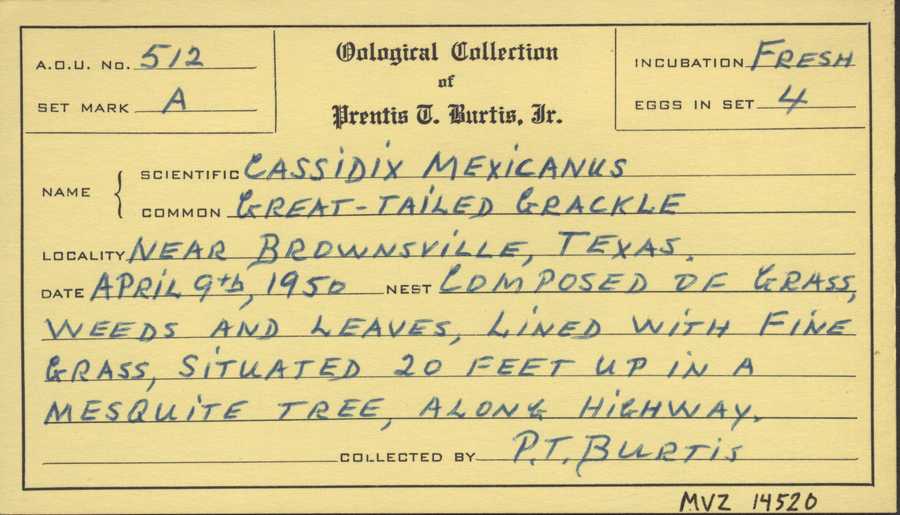 A.O.U. No. 512
SET MARK A
Oological Collection
of
Prentis T. Burtis, Jr.
INCUBATION FRESH
EGGS IN SET 4
NAME { SCIENTIFIC CASSIDIX MEXICANUS
COMMON GREAT-TAILED GRACKLE
LOCALITY NEAR BROWNSVILLE, TEXAS.
DATE APRIL 9th, 1950 NEST COMPOSED OF GRASS,
WEEDS AND LEAVES, LINED WITH FINE
GRASS, SITUATED 20 FEET UP IN A
MESQUITE TREE, ALONG HIGHWAY.
COLLECTED BY P.T. BURTIS
MVZ 14520